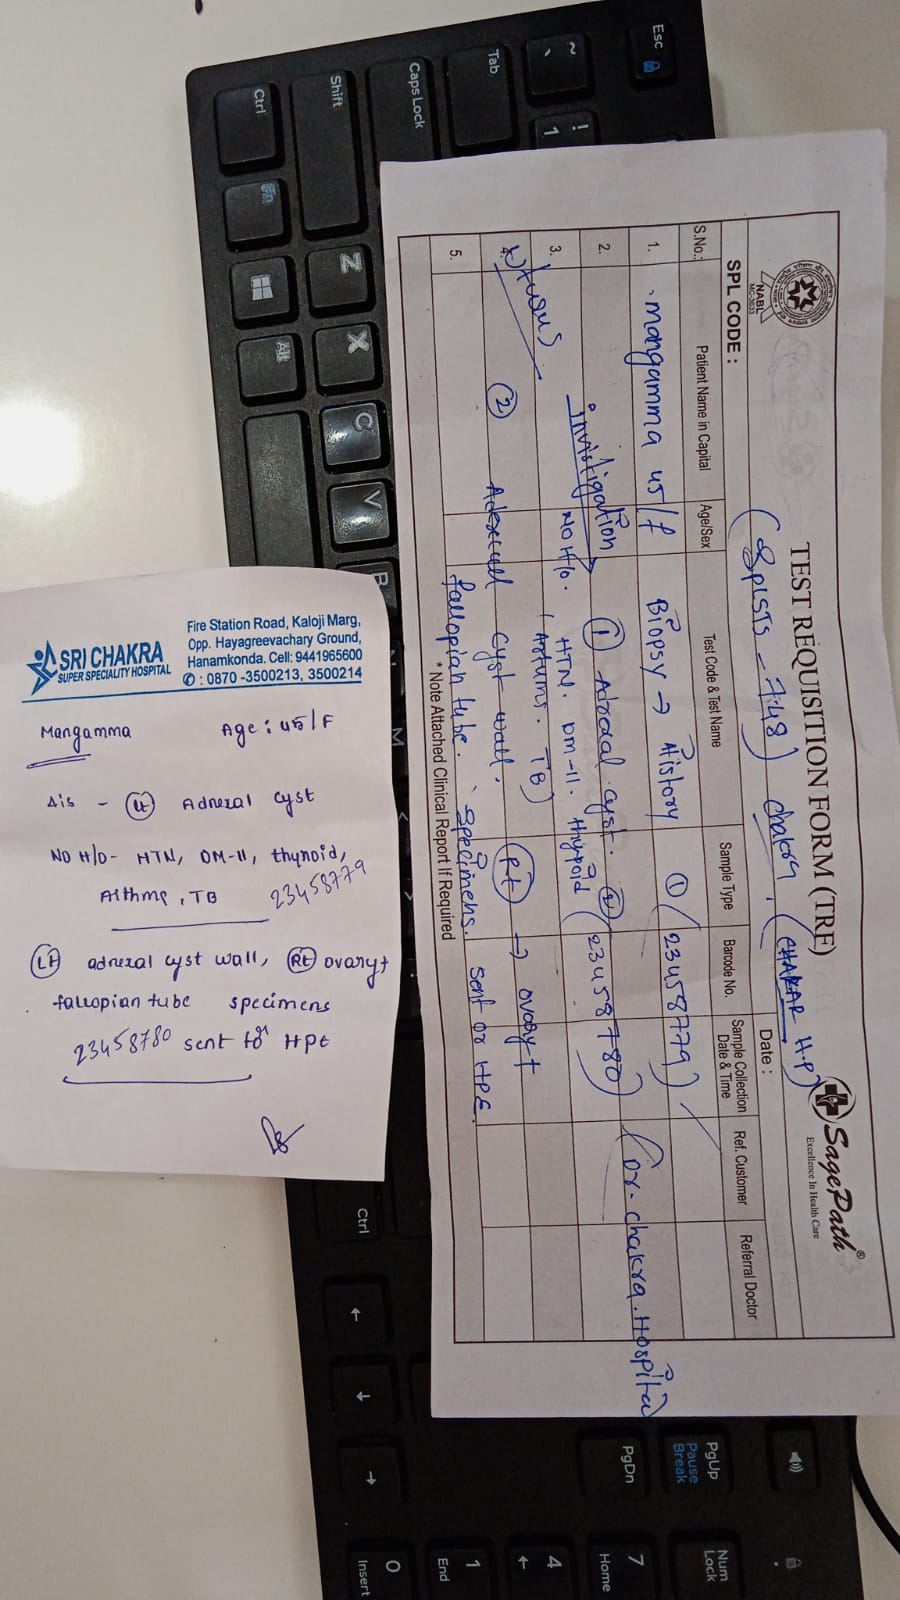 SRI CHAKRA
SUPER SPECIALITY HOSPITAL
Fire Station Road, Kaloji Marg,
Opp. Hayagreevachary Ground,
Hanamkonda. Cell: 9441965600
✆ : 0870 -3500213, 3500214
Mangamma Age : 45/F
Dis - (Lt) Adnexal cyst
NO H/O- HTN, DM-II, thyroid,
Asthma, TB 23458779
(Lt) adnexal cyst wall, (Rt) ovary +
fallopian tube specimens
23458780 sent for HPE
NABL
MC-3633
TEST REQUISITION FORM (TRE)
SagePath®
Excellence In Health Care
SPL CODE : chakra Date :
S.No.: Patient Name in Capital Age/Sex Test Code & Test Name Sample Type Barcode No. Sample Collection Date & Time Ref. Customer Referral Doctor
1. mangamma 45/f Biopsy → History ① (23458779)
2. investigation ① cyst. ② (23458780) (Dr. chakra. Hospital)
3. NO H/o. HTN. DM-II. thyroid (TB)
4. ② cyst wall, (Rt) → ovary +
5. fallopian tube. specimens. sent or HPE.
* Note Attached Clinical Report If Required
Esc
~
`
!
1
Tab
Caps Lock
Shift
Ctrl
Alt
Z
X
C
V
B
M
<
>
Ctrl
PgUp
Pause
Break
PgDn
Num
Lock
7
Home
4
1
End
0
Insert